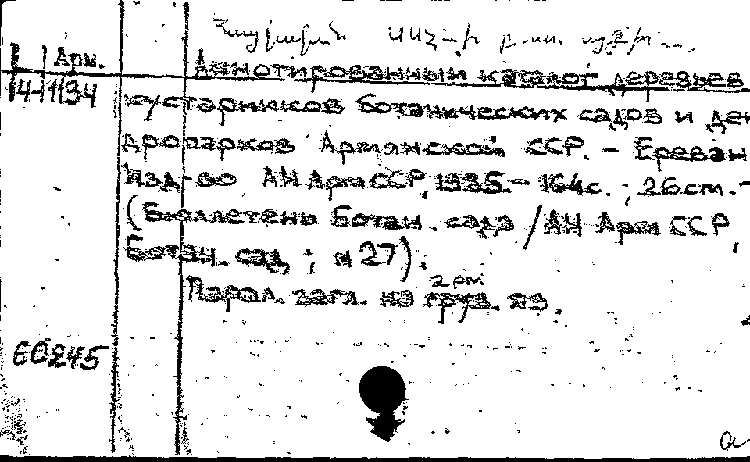 Հայկական ՍՍՀ
Арм.
Аннотированный каталог деревьев
14-1134
кустарников ботанических садов и ден
дропарков Армянской ССР. - Ереван
Изд-во АН Арм ССР, 1985.- 164с. ; 26см. -
(Бюллетень Ботан. сада / АН Арм ССР,
Ботан. сад ; № 27).
Парал. загл. на груз. яз.
60245